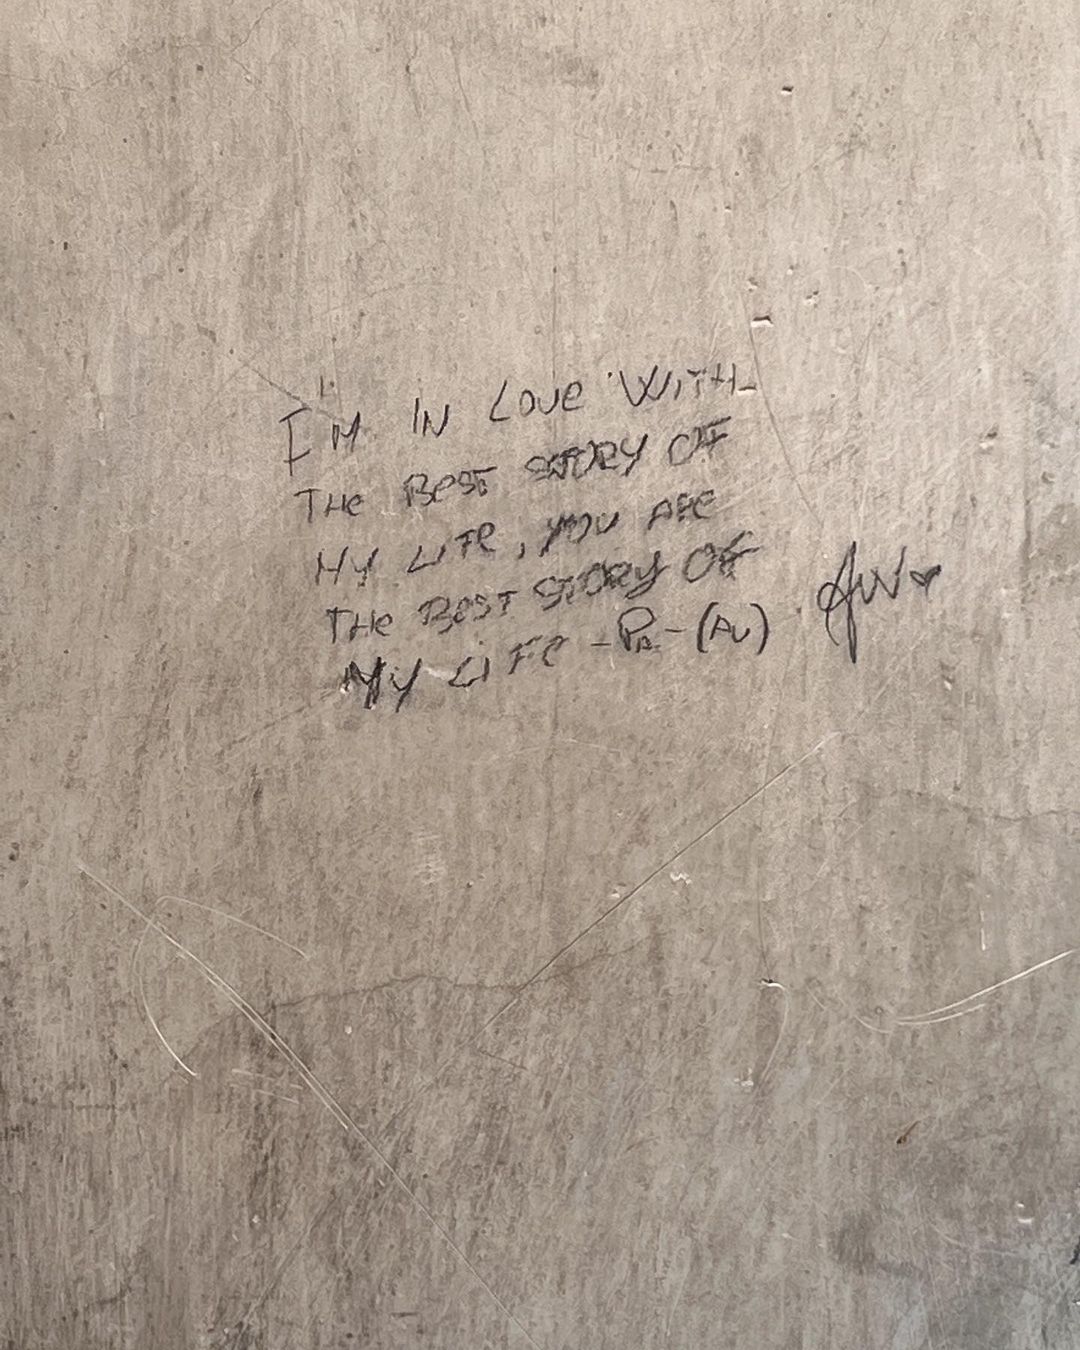 I'M IN LOVE WITH
THE BEST STORY OF
MY LIFE, YOU ARE
THE BEST STORY OF
MY LIFE - PA - (AU)